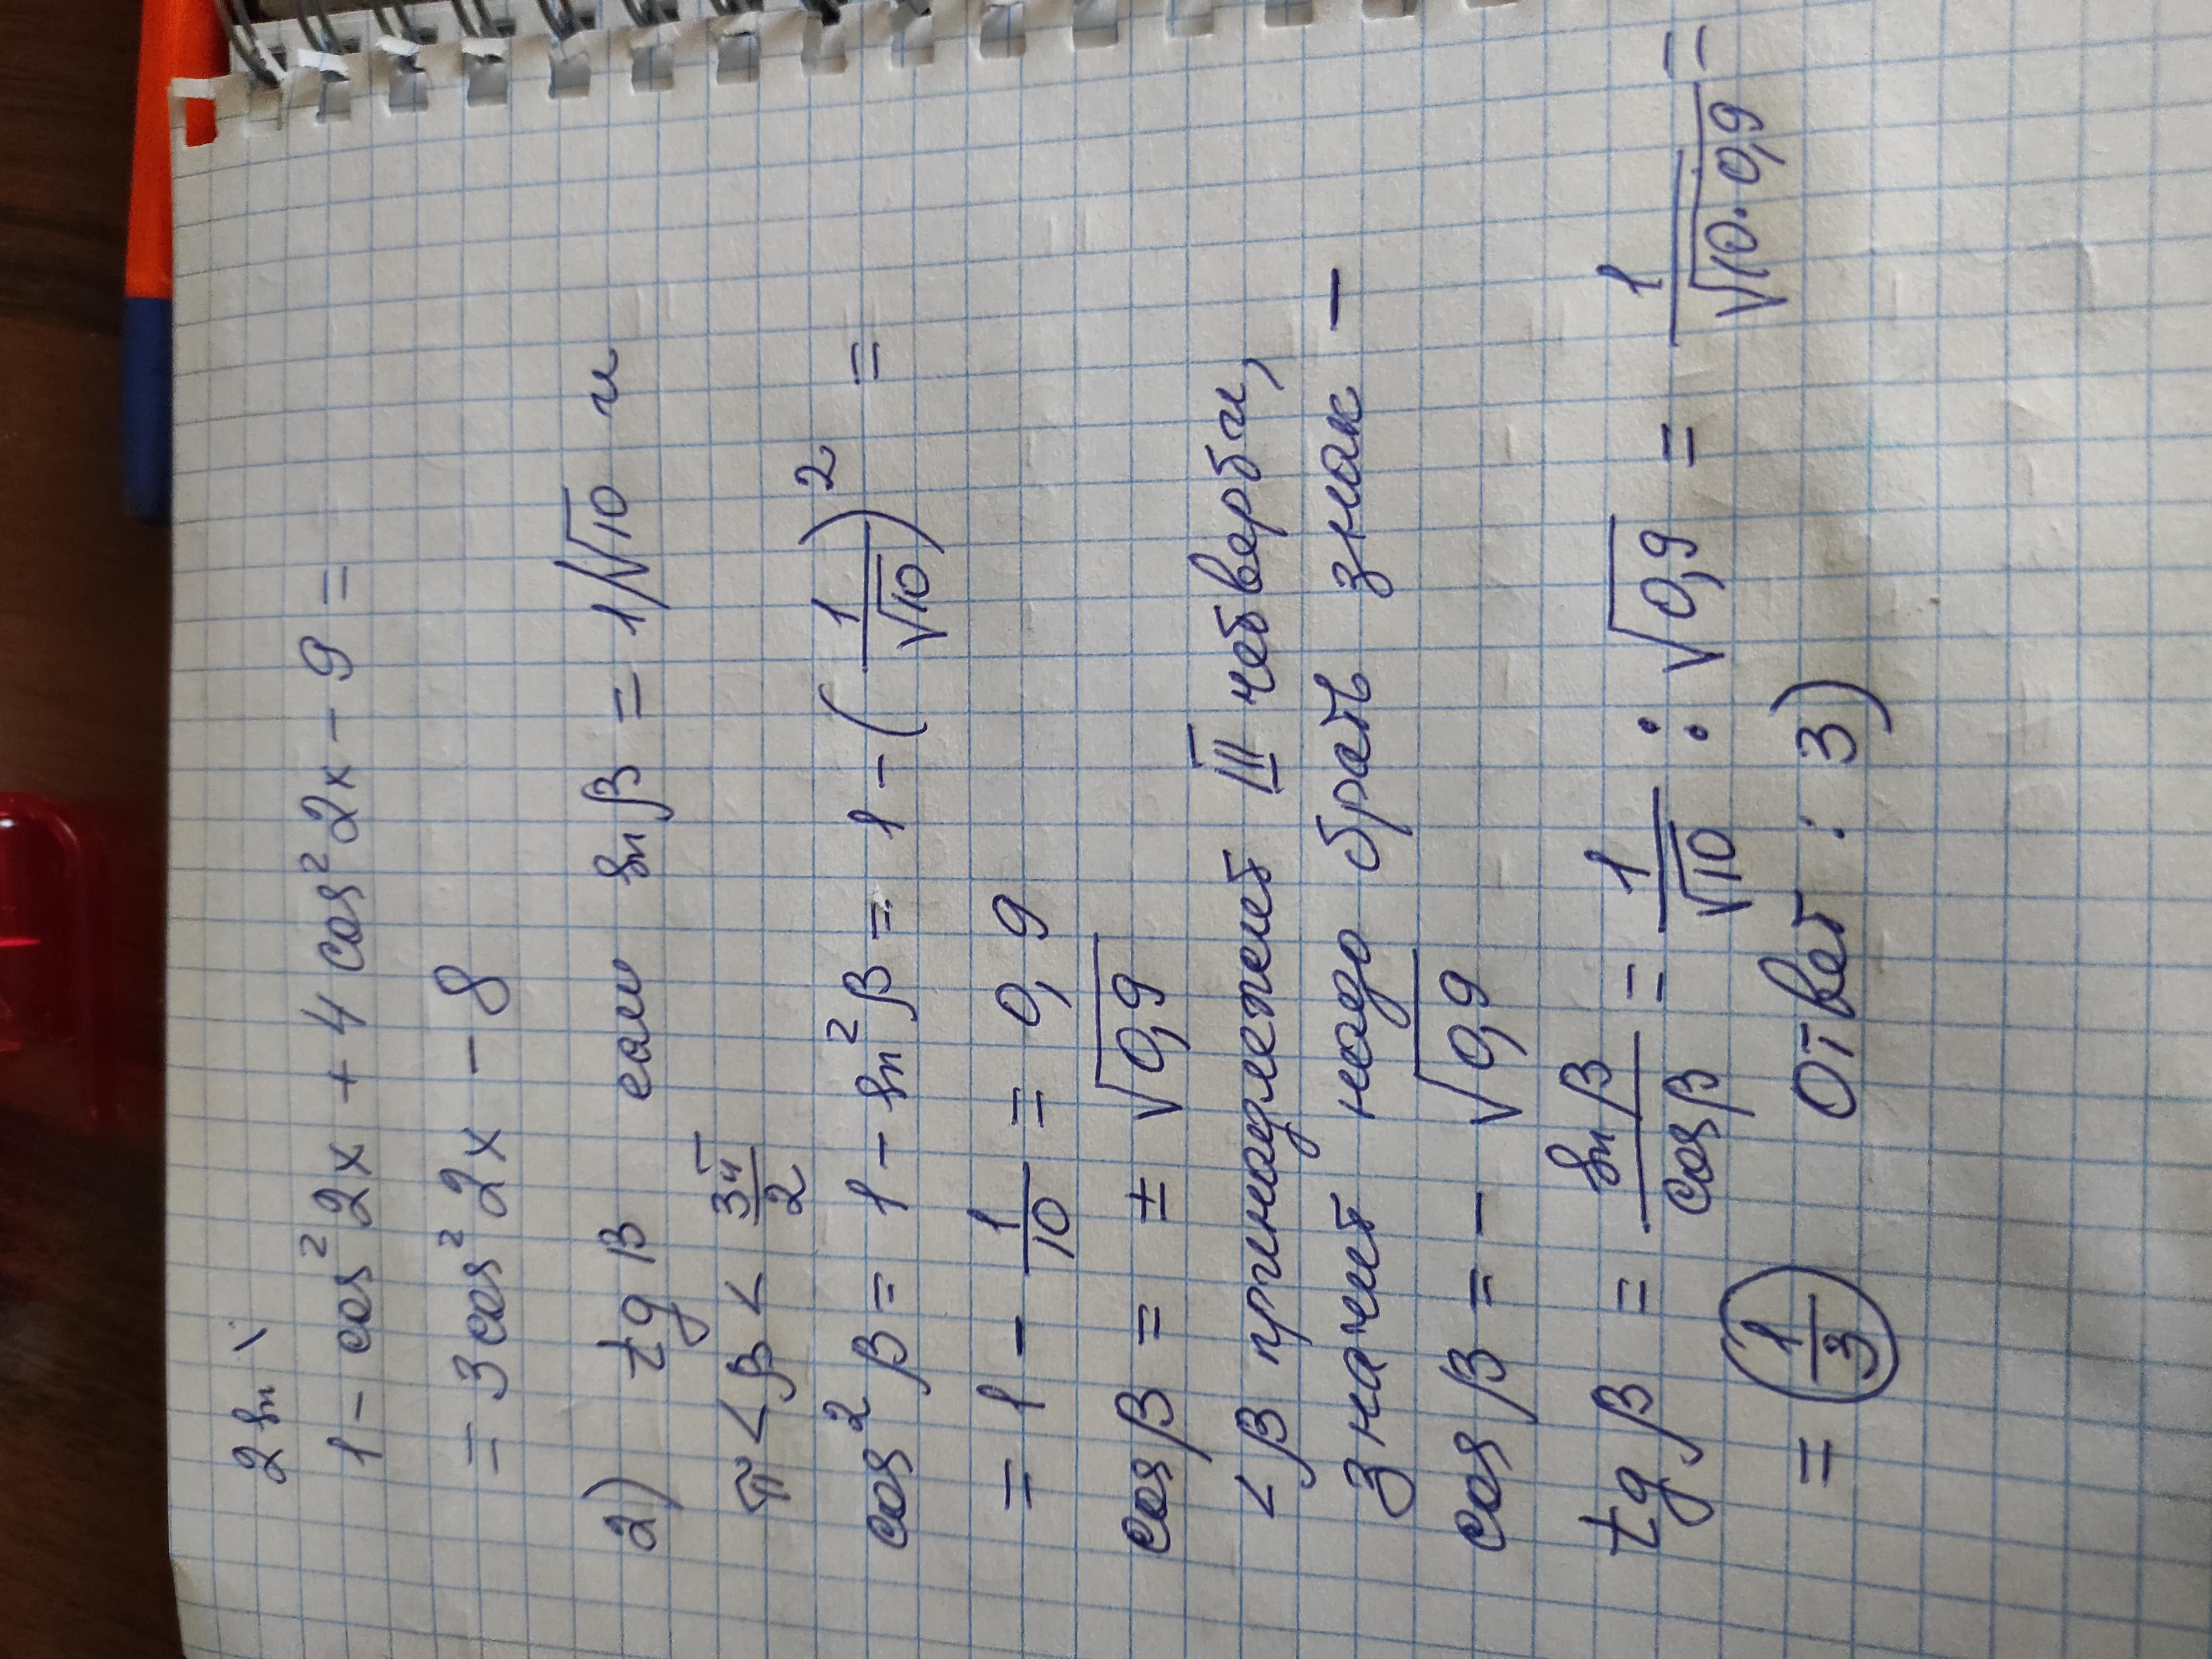 2 sin
1 - cos² 2x + 4 cos² 2x - 9 =
= 3 cos² 2x - 8
2) tg β если sin β = 1/√10 и
π < β < 3π/2
cos² β = 1 - sin² β = 1 - (1/√10)² =
= 1 - 1/10 = 0,9
cos β = ± √0,9
< β принадлежит III четверти,
значит надо брать знак -
cos β = - √0,9
tg β = sin β/cos β = 1/√10 : √0,9 = 1/√10·0,9 =
= 1/3 Ответ : 3)